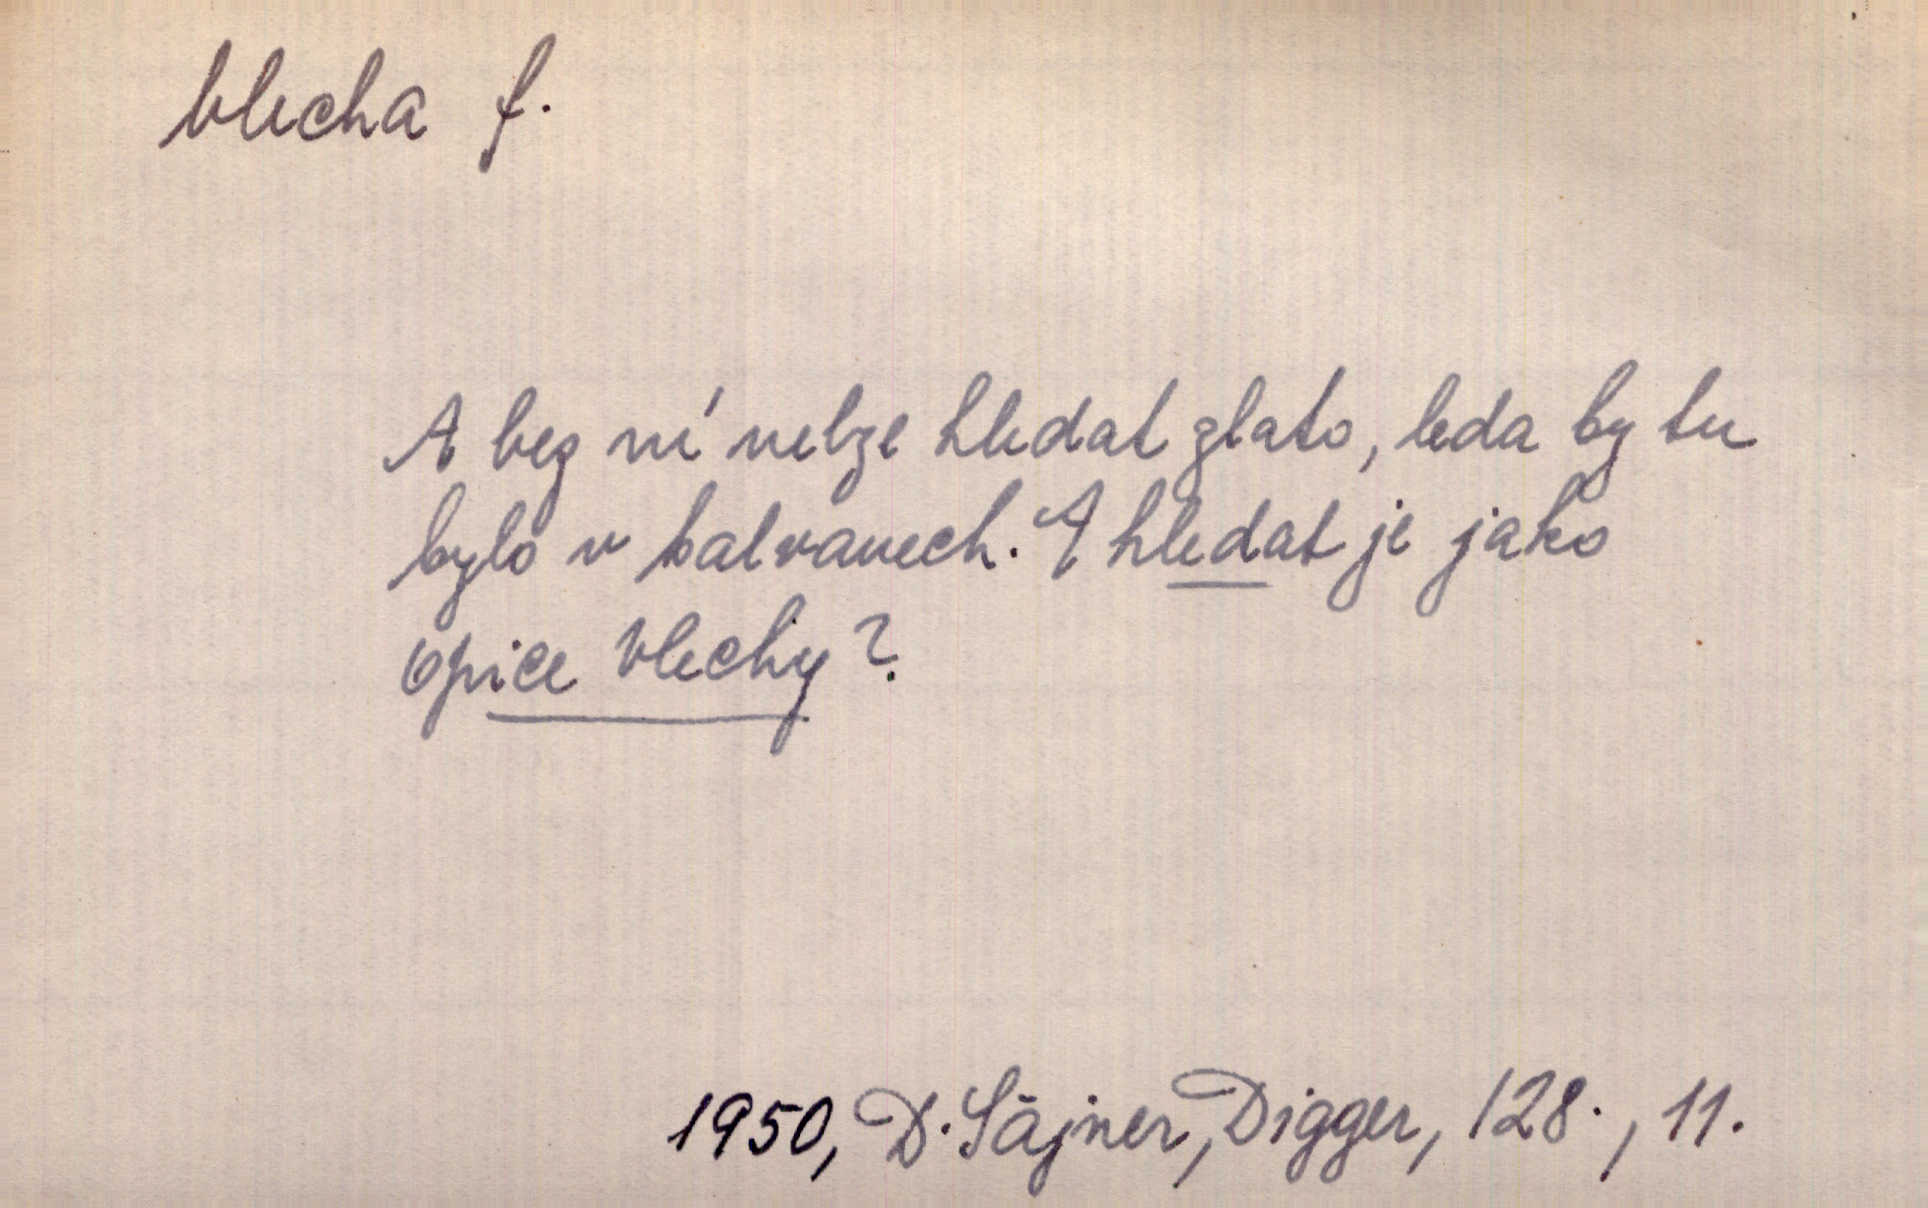 blecha f.
A bez ní nelze hledat zlato, leda by tu
bylo v balvanech. A hledat je jako
opice blechy?
1950, D. Šajner, Digger, 128., 11.